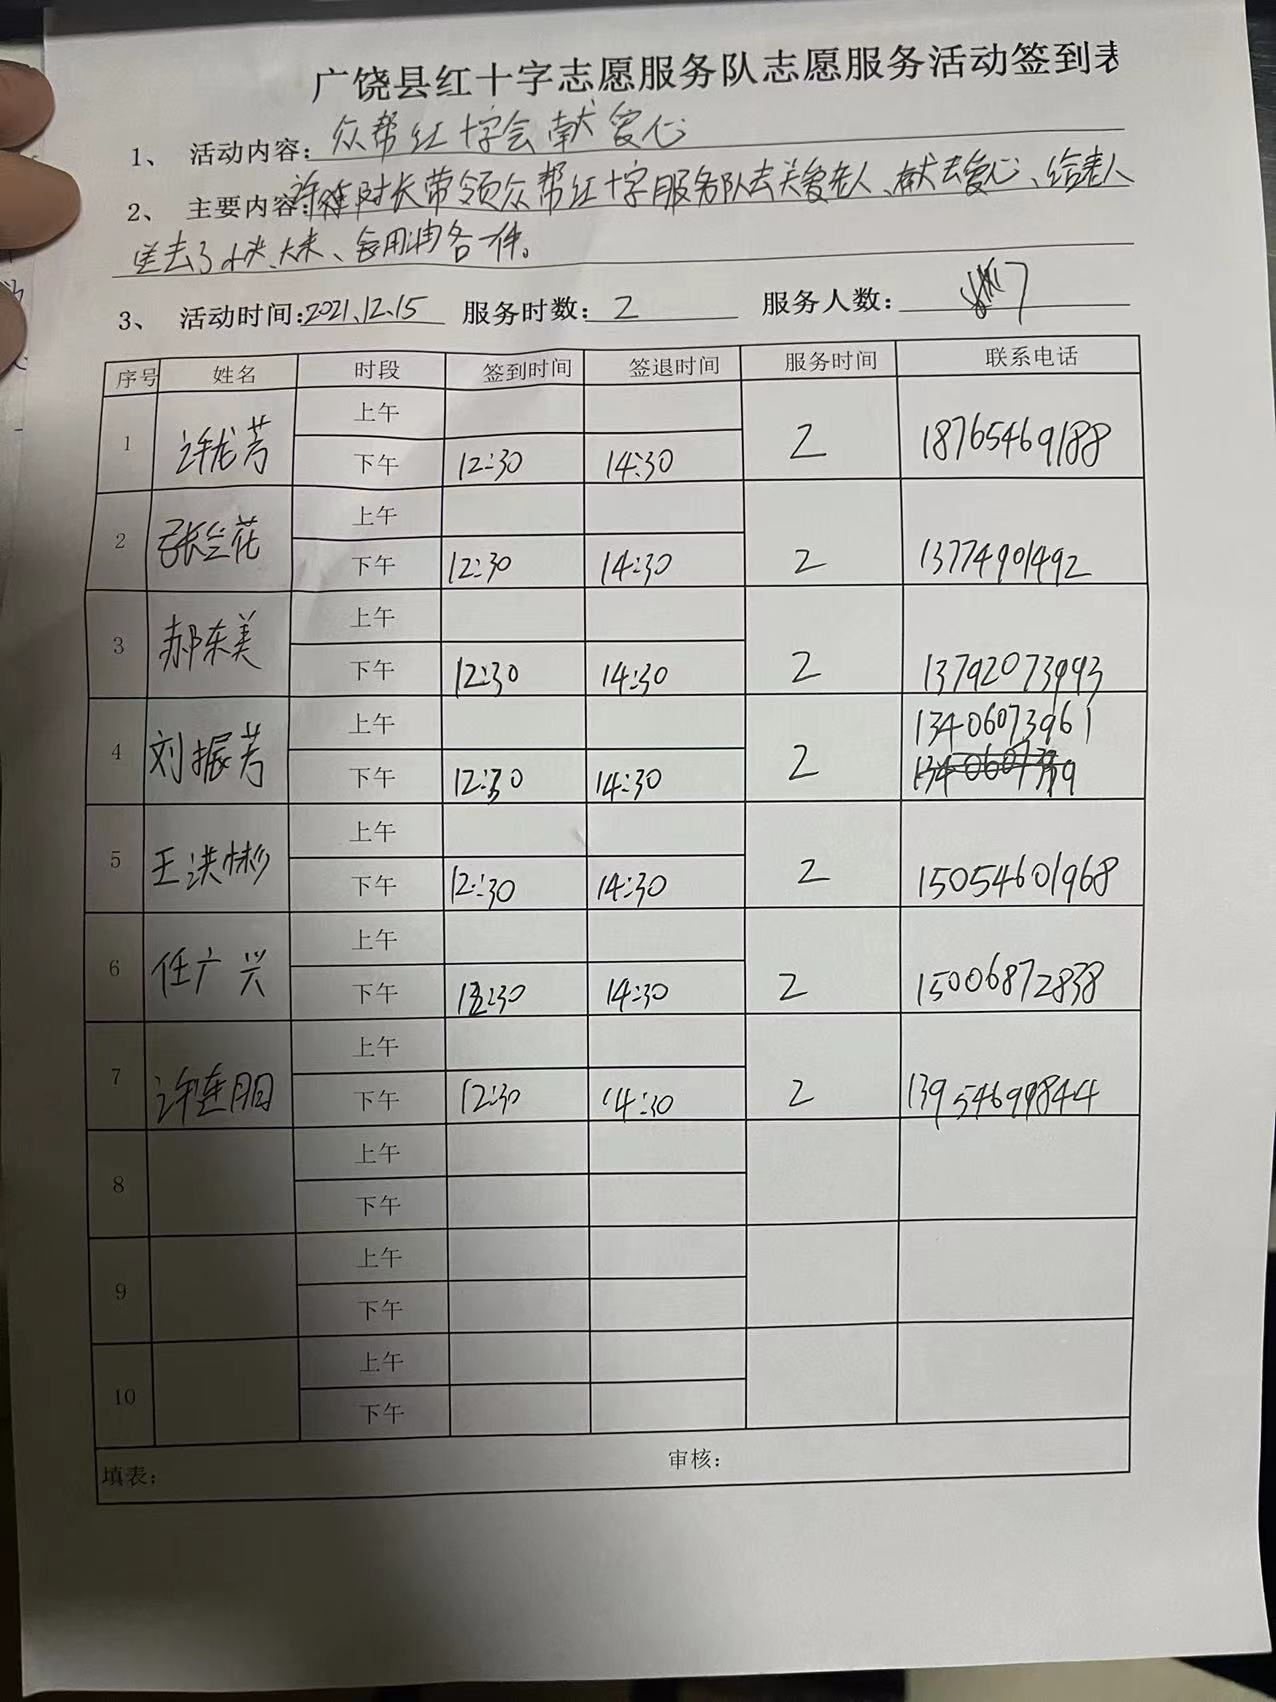 广饶县红十字志愿服务队志愿服务活动签到表
1、 活动内容：众帮红十字会献爱心
2、 主要内容：许连队长带领众帮红十字服务队去关爱老人、献去爱心、给老人
送去了小米、大米、食用油各一件。
3、 活动时间：2021.12.15 服务时数：2 服务人数：7
序号 姓名 时段 签到时间 签退时间 服务时间 联系电话
1 许龙芳 上午
下午 12:30 14:30 2 18765469188
2 张兰花 上午
下午 12:30 14:30 2 13774901492
3 郝东美 上午
下午 12:30 14:30 2 13792073993
4 刘振芳 上午 13406073961
下午 12:30 14:30 2
5 王洪彬 上午
下午 12:30 14:30 2 15054601968
6 任广兴 上午
下午 12:30 14:30 2 15006872838
7 许连朋 上午
下午 12:30 14:30 2 13954699844
8 上午
下午
9 上午
下午
10 上午
下午
填表： 审核：